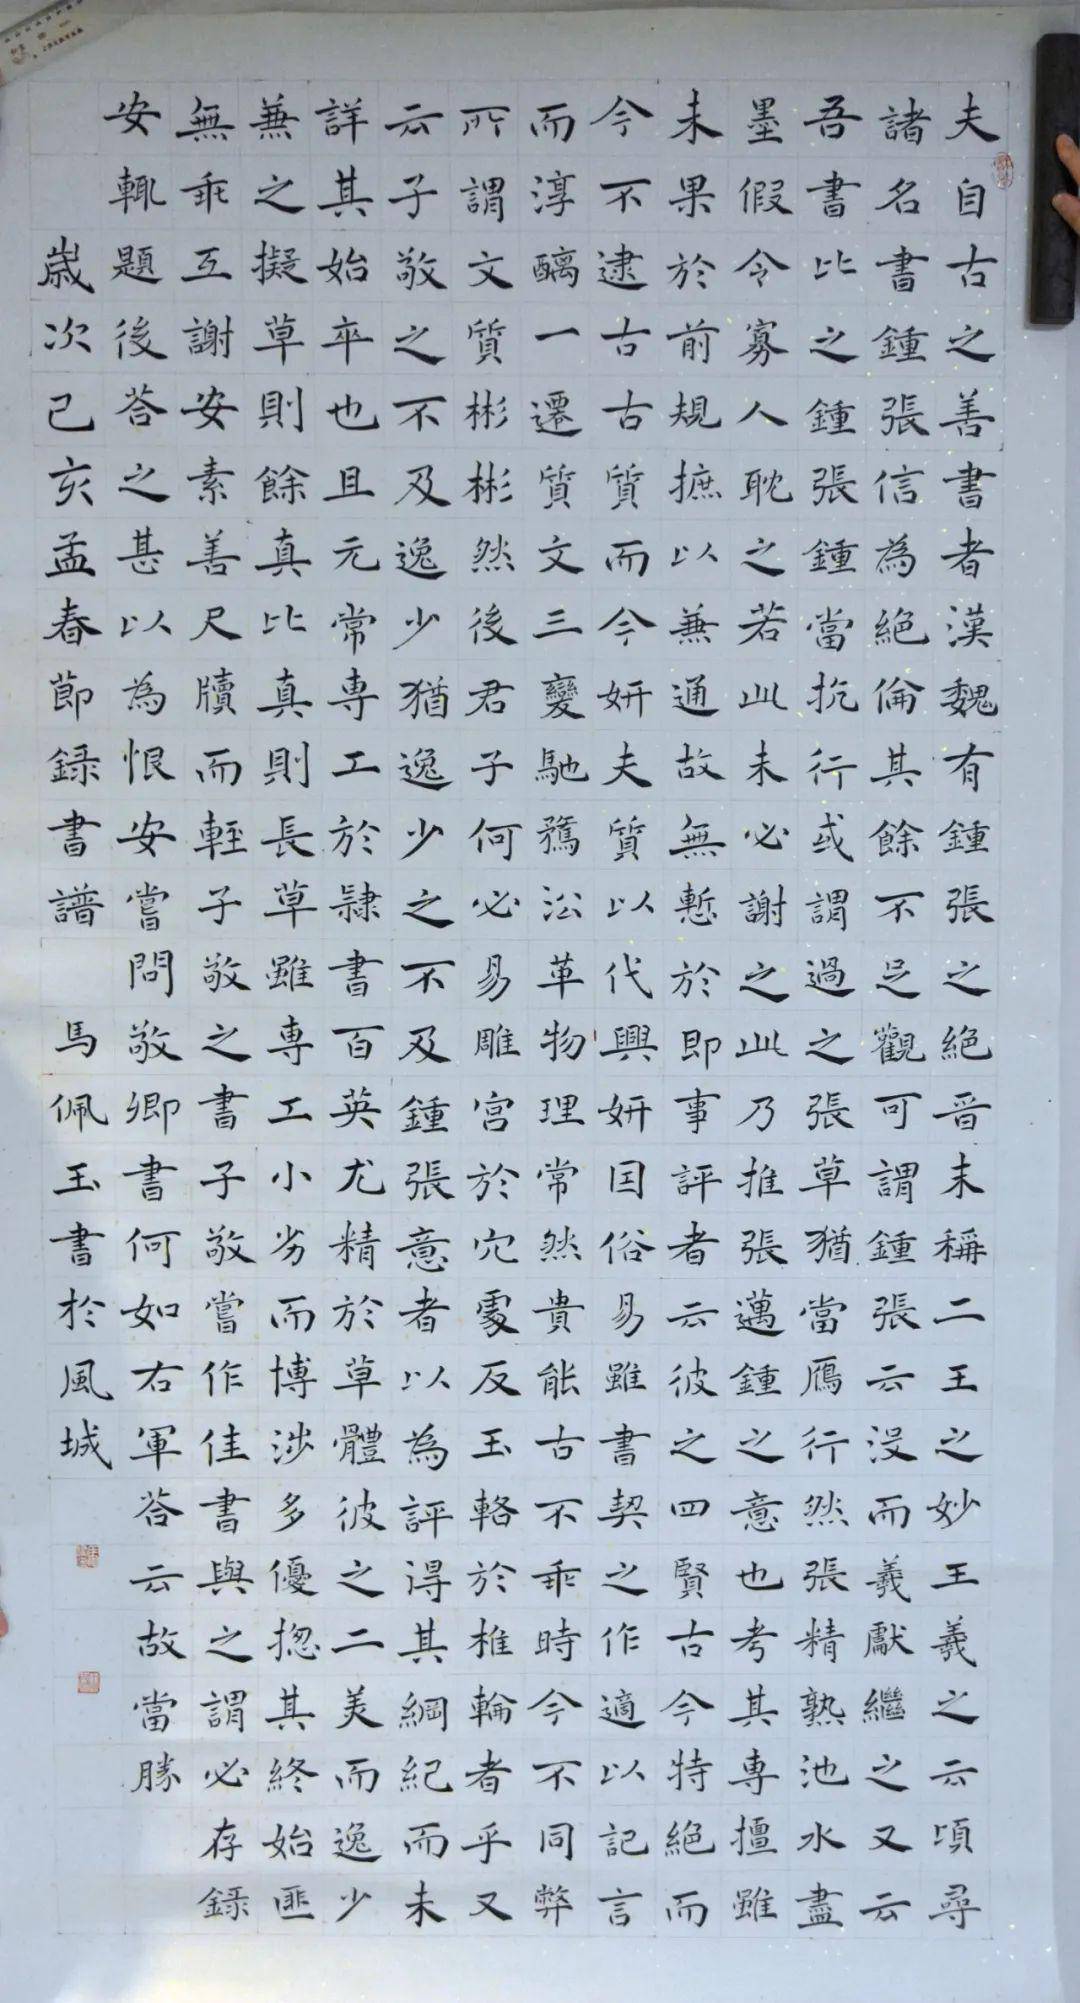 夫自古之善書者漢魏有鍾張之絕晉末稱二王之妙王羲之云頃尋
諸名書鍾張信為絕倫其餘不足觀可謂鍾張云沒而羲獻繼之又云
吾書比之鍾張鍾當抗行或謂過之張草猶當鴈行然張精熟池水盡
墨假令寡人耽之若此未必謝之此乃推張邁鍾之意也考其專擅雖
未果於前規摭以兼通故無慙於即事評者云彼之四賢古今特絕而
今不逮古古質而今妍夫質以代興妍因俗易雖書契之作適以記言
而淳醨一遷質文三變馳騖沿革物理常然貴能古不乖時今不同弊
所謂文質彬彬然後君子何必易雕宮於穴處反玉輅於椎輪者乎又
云子敬之不及逸少猶逸少之不及鍾張意者以為評得其綱紀而未
詳其始卒也且元常專工於隸書百英尤精於草體彼之二美而逸少
兼之擬草則餘真比真則長草雖專工小劣而博涉多優揔其終始匪
無乖互謝安素善尺牘而輕子敬之書子敬嘗作佳書與之謂必存錄
安輒題後荅之甚以為恨安嘗問敬卿書何如右軍荅云故當勝
歲次己亥孟春節錄書譜 馬佩玉書於風城